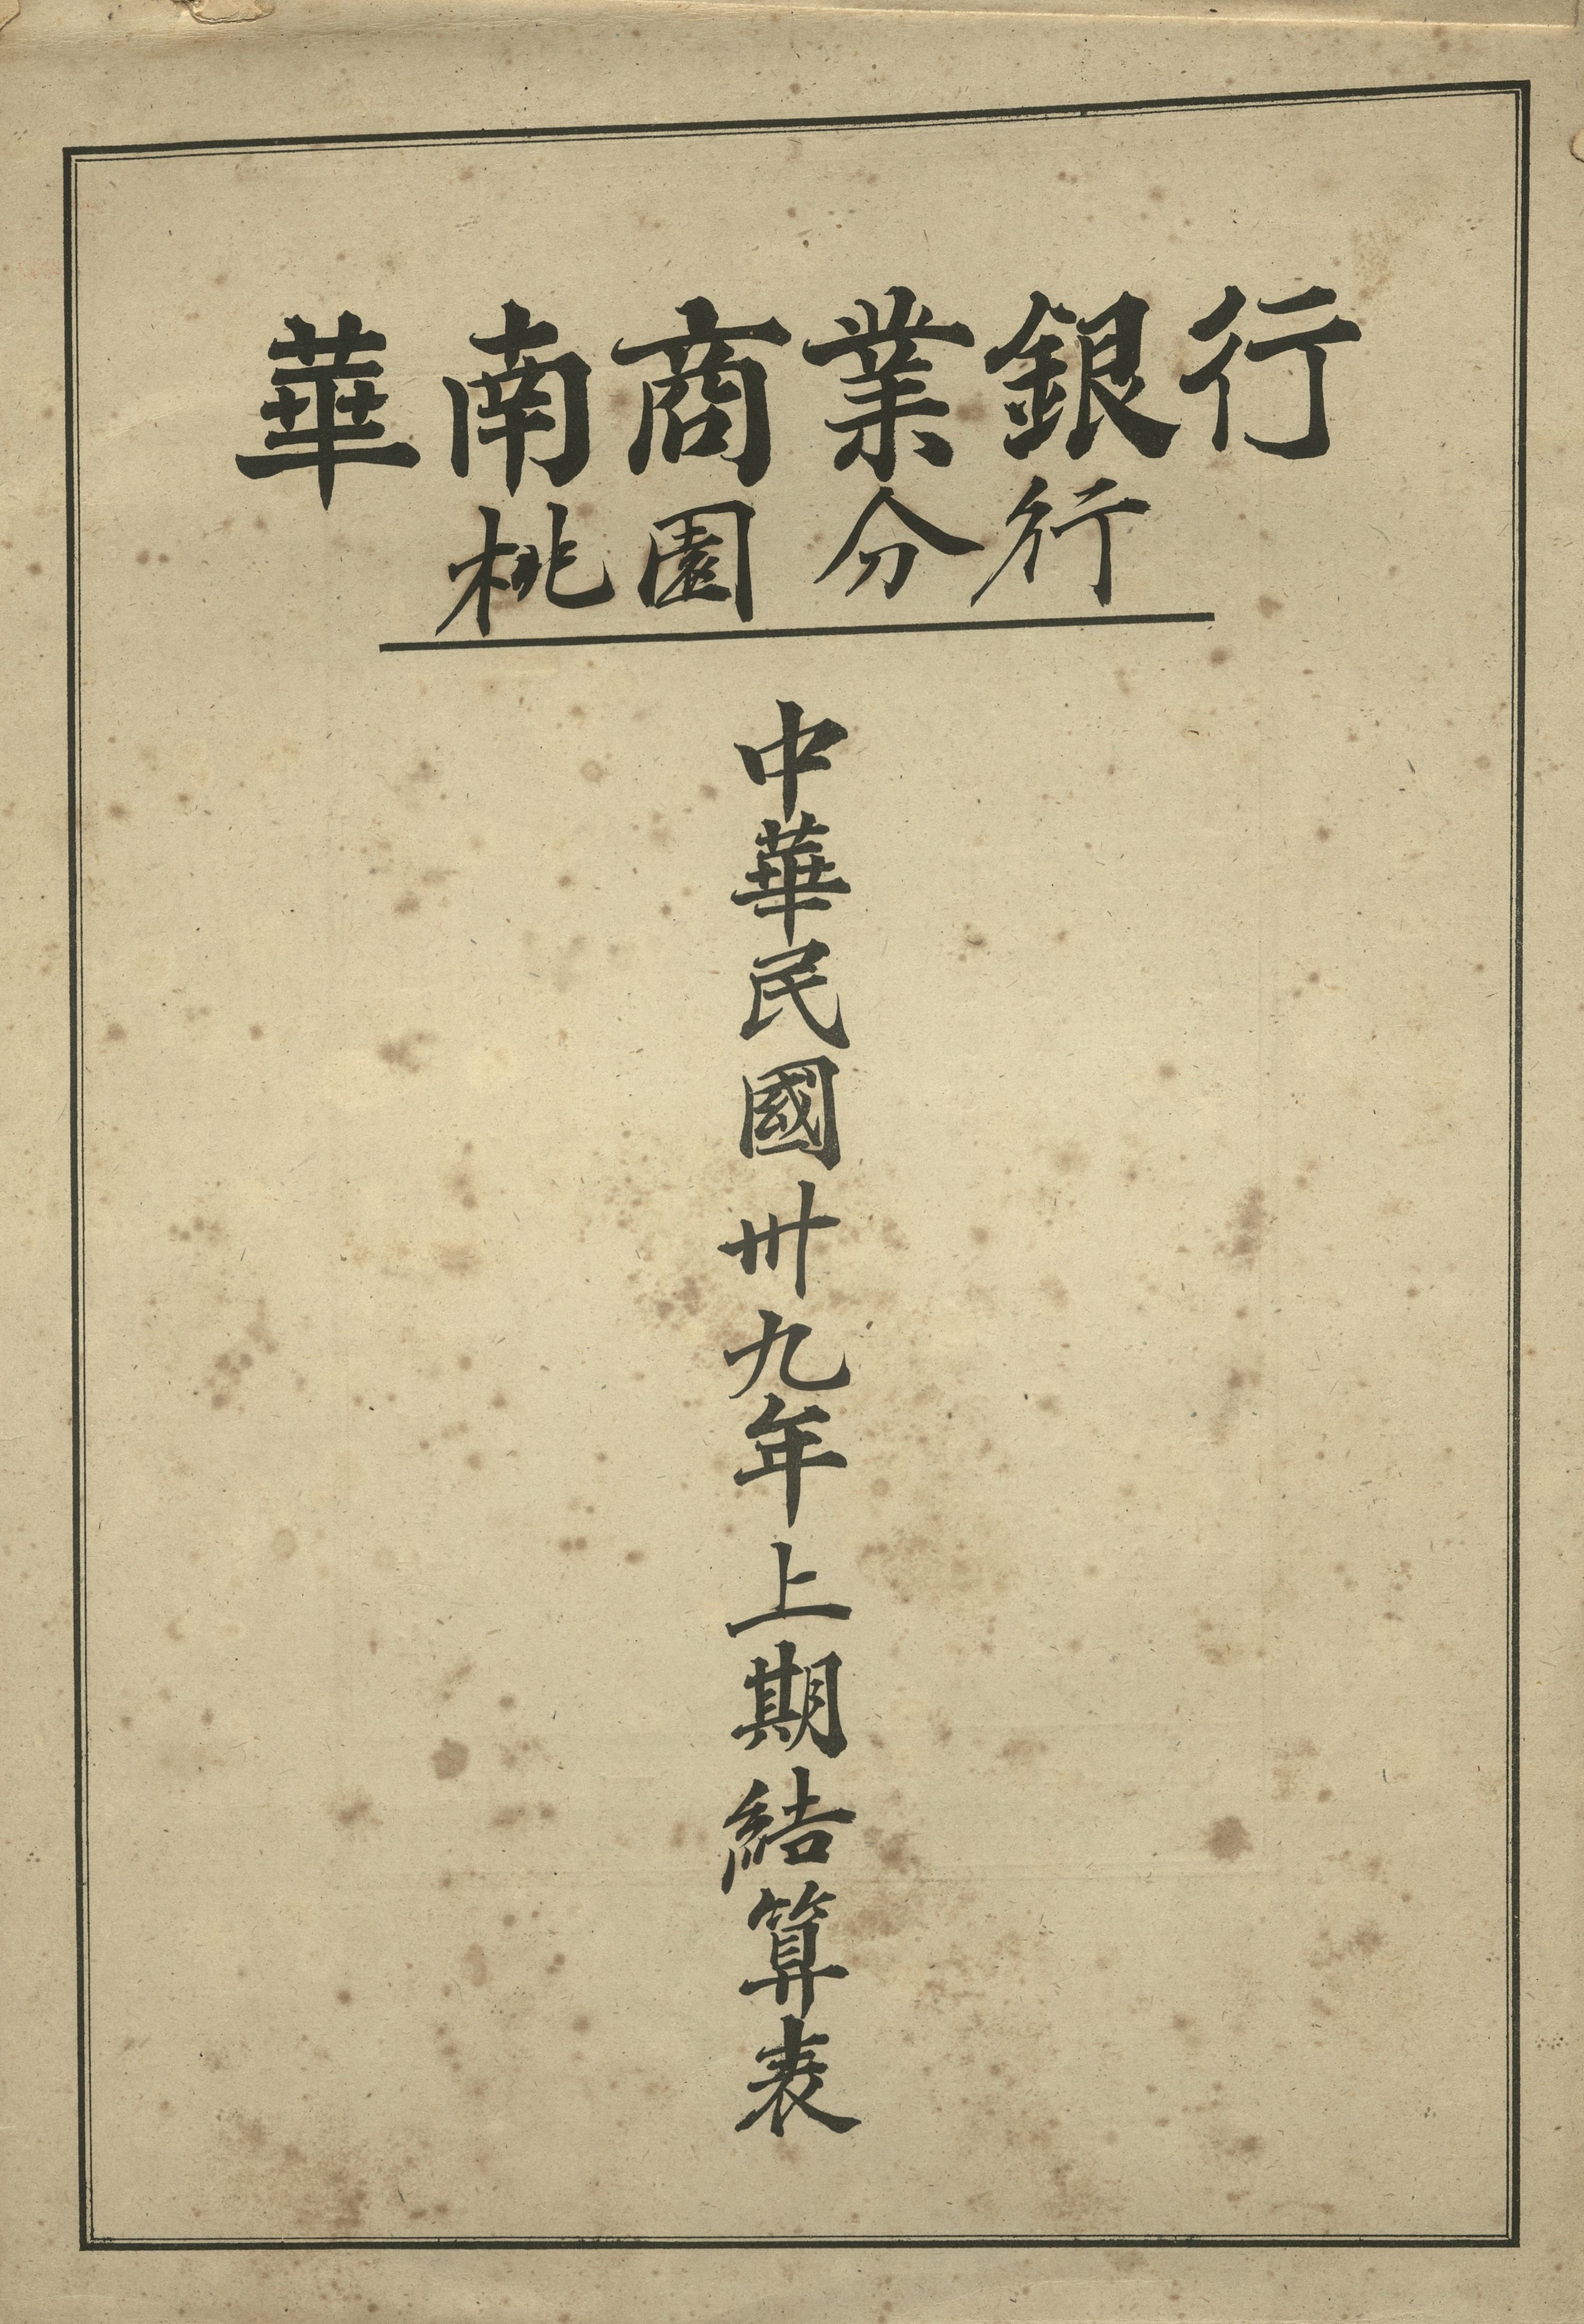 華南商業銀行
桃園分行
中華民國卅九年上期結算表